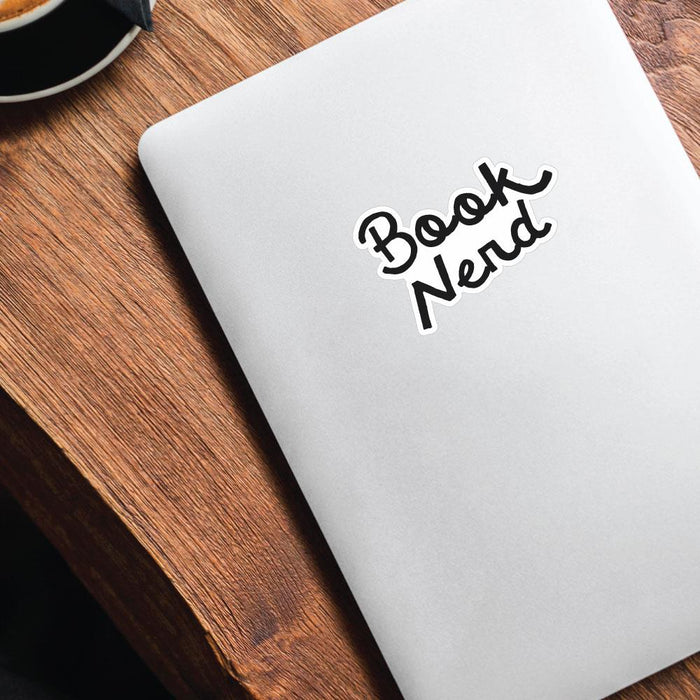 Book
Nerd